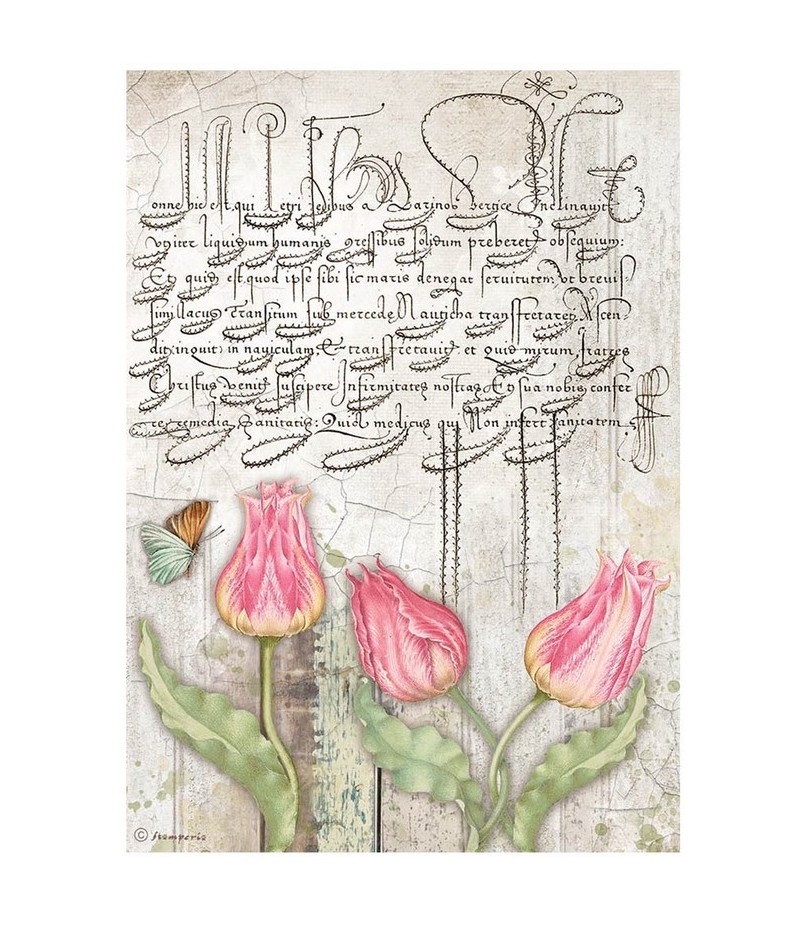 onne hic est, qui Petri pedibus a Marino vertice Inclinavit,
Vt iter liquidum humanis gressibus solidum preberet obsequium:
Et quid est, quod ipse sibi sic maris denegat seruitutem, Vt breuis-
simi lacus Transitum sub mercede Nauticha transfretaret, Ascen-
dit, inquit, in nauiculam, Et transfretauit, et quid mirum, fratres
Christus Venit suscipere Infirmitates nostras, Et sua nobis confer
re remedia Sanitatis: Quia medicus qui Non infert sanitatem
© Stamperia